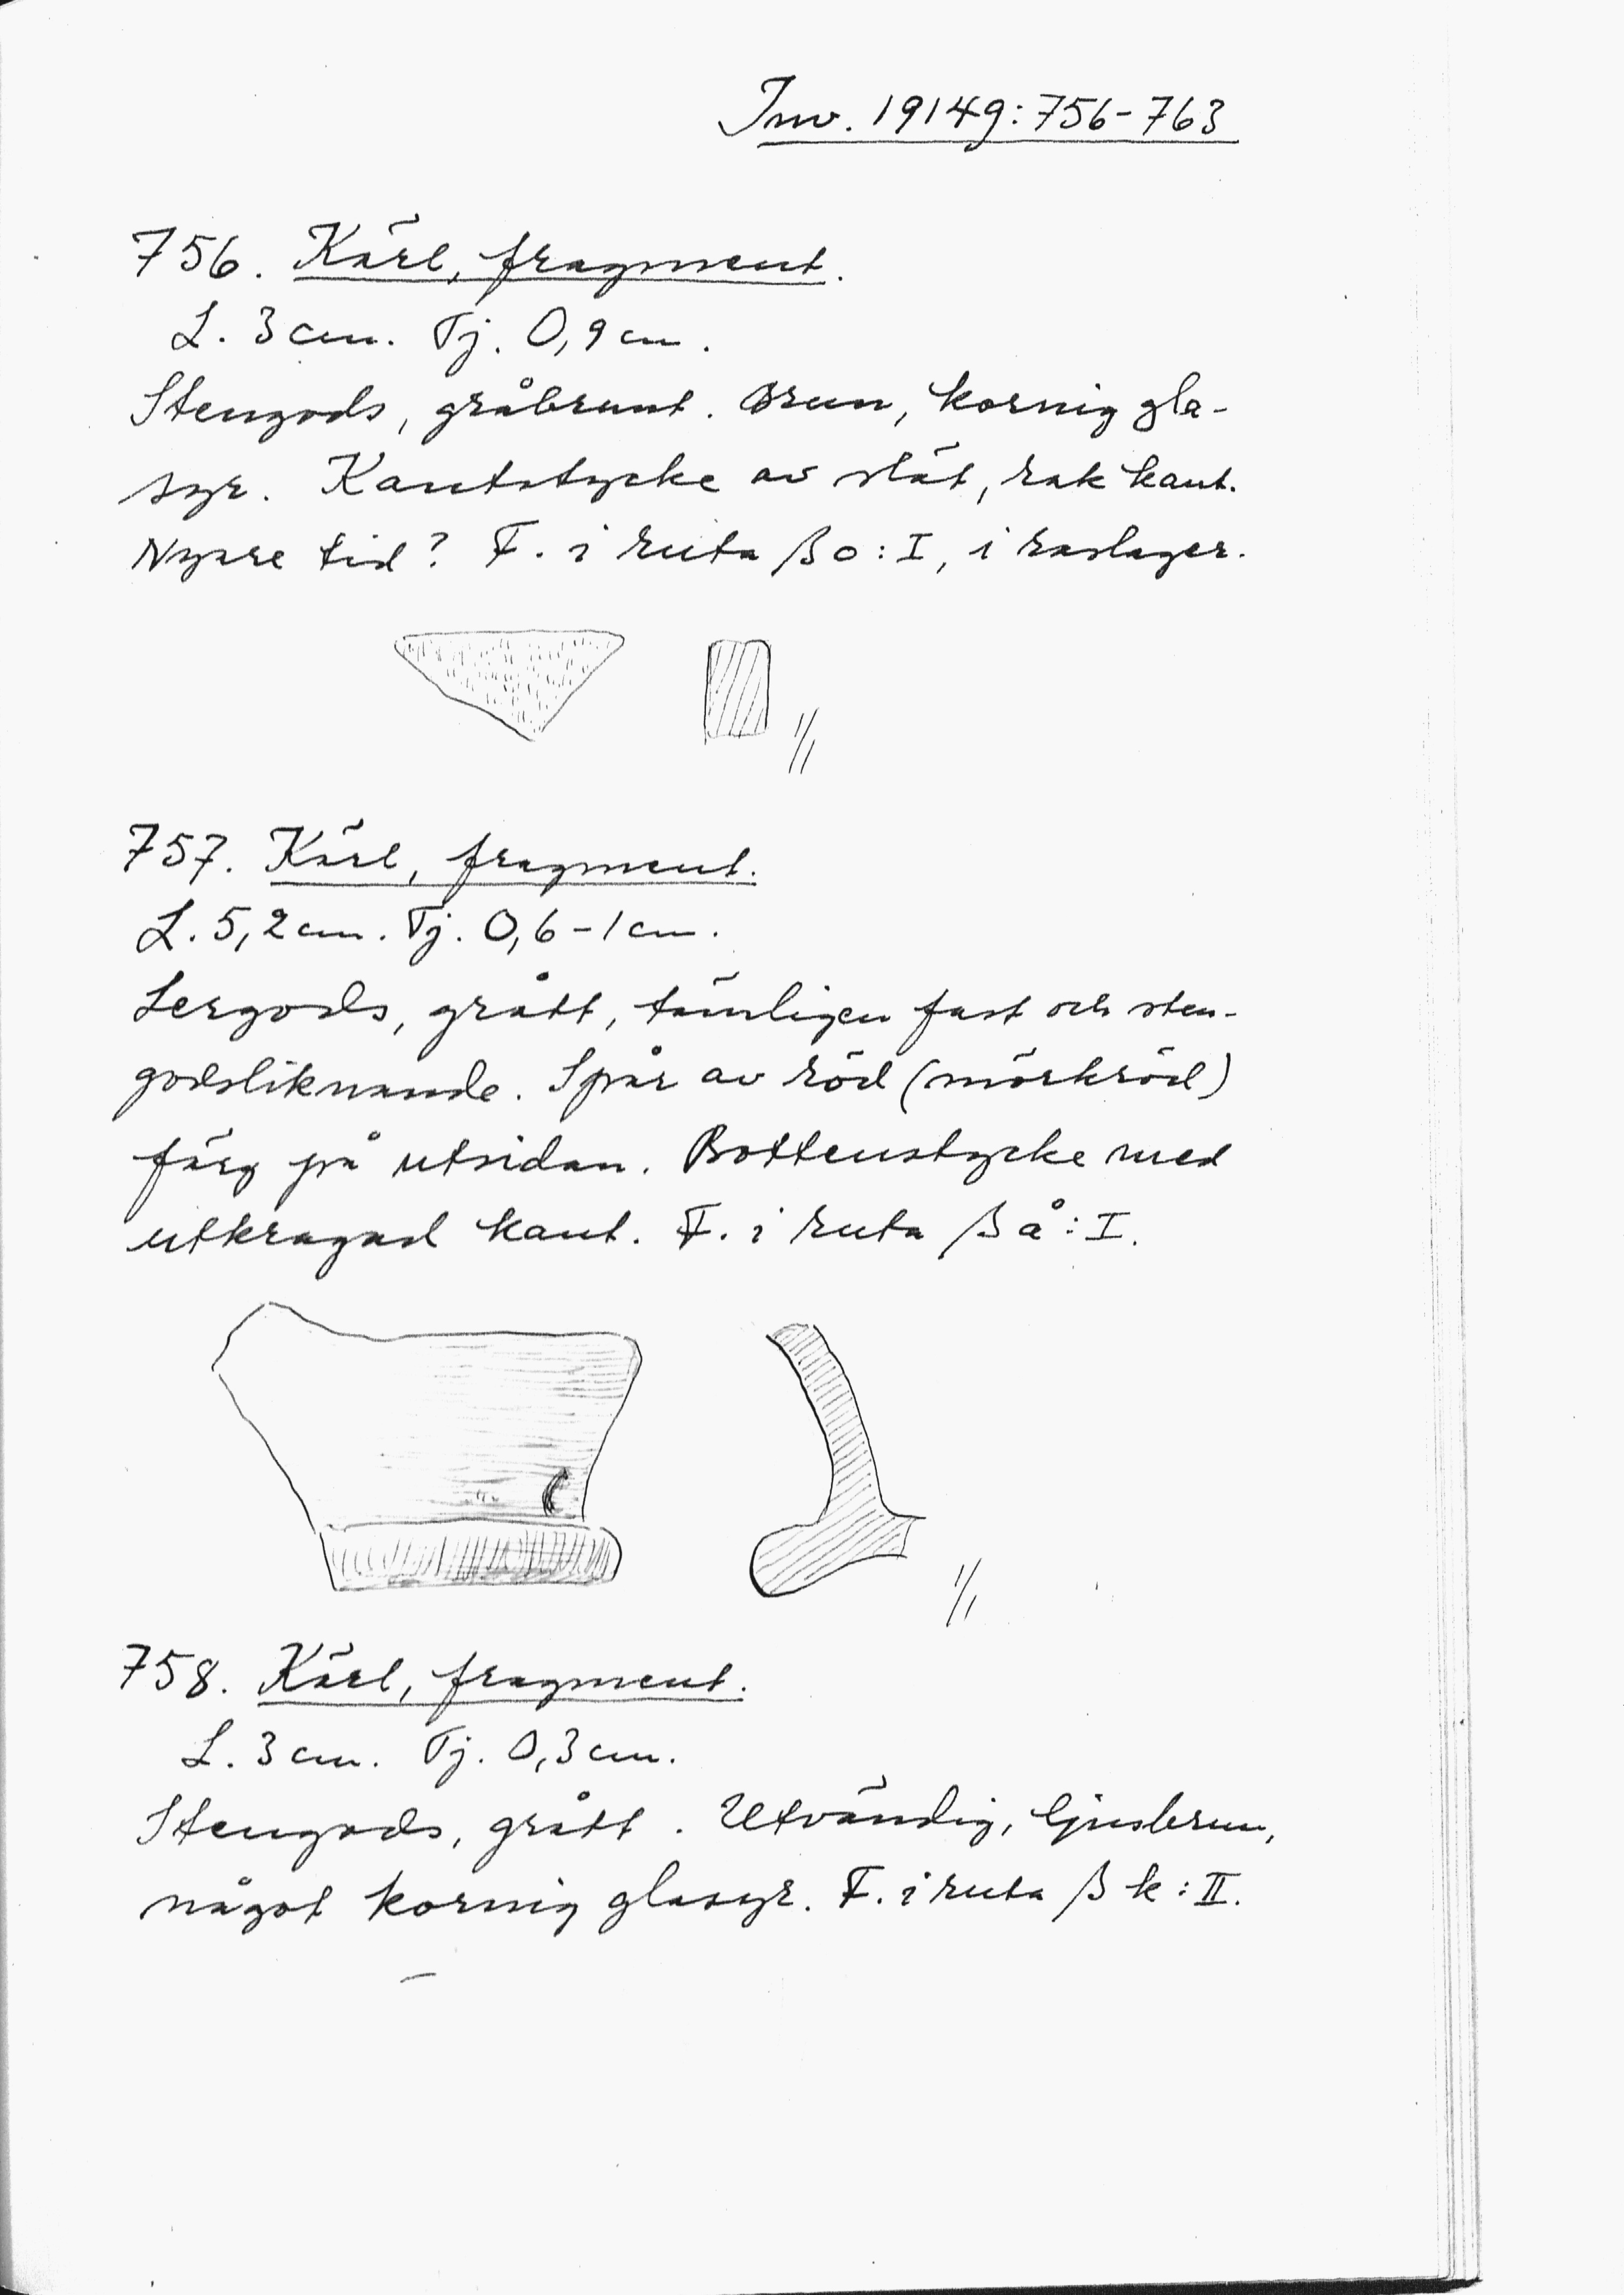 Inv. 19149:756-763
756. Kärl, fragment.
L. 3 cm. Tj. 0,9 cm.
Stengods, gråbrunt. Brun, kornig gla-
syr. Kantstycke av slät, rak kant.
Nyare tid? F. i ruta βo:I, i raslager.
1/1
757. Kärl, fragment.
L. 5,2 cm. Tj. 0,6-1 cm.
Lergods, grått, tämligen fast och sten-
godsliknande. Spår av röd (mörkröd)
färg på utsidan. Bottenstycke med
utkragad kant. F. i ruta βå:I.
1/1
758. Kärl, fragment.
L. 3 cm. Tj. 0,3 cm.
Stengods, grått. Utvändig, ljusbrun,
något kornig glasyr. F. i ruta βk:II.